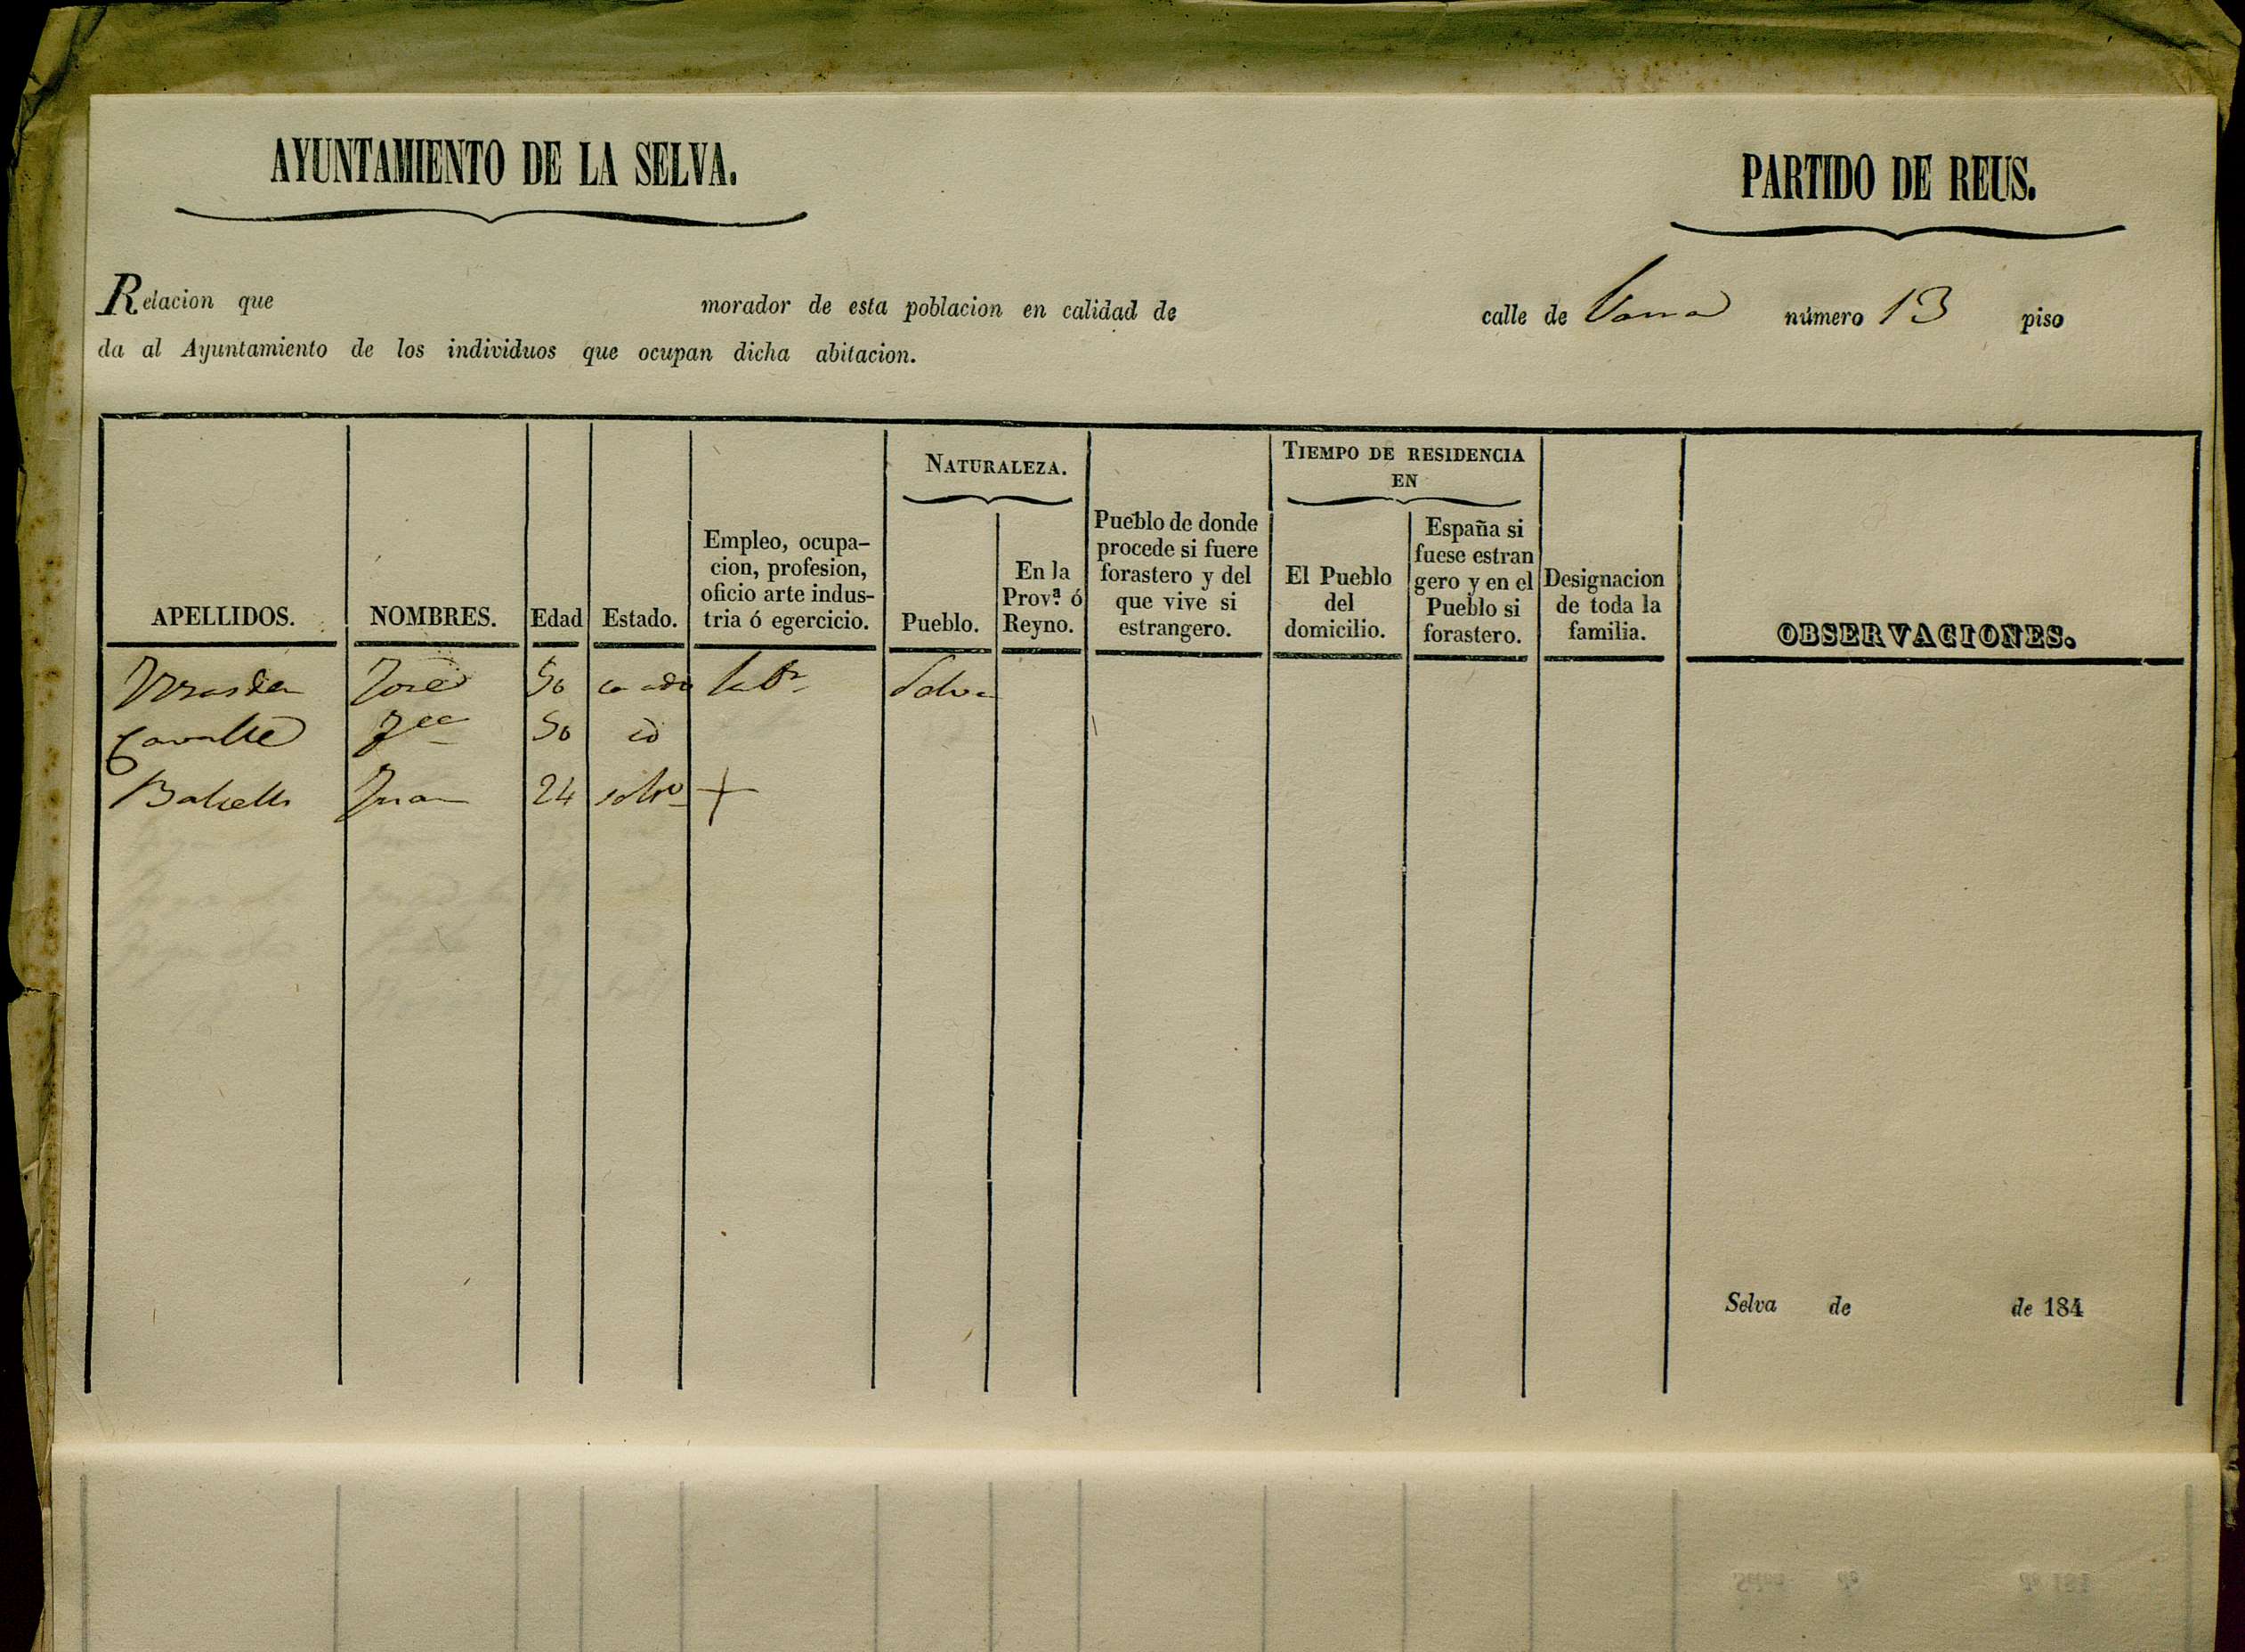 AYUNTAMIENTO DE LA SELVA.
PARTIDO DE REUS.
Relacion que morador de esta poblacion en calidad de calle de número 13 piso
da al Ayuntamiento de los individuos que ocupan dicha abitacion.
NATURALEZA.
TIEMPO DE RESIDENCIA
EN
APELLIDOS.
NOMBRES.
Edad
Estado.
Empleo, ocupa-
cion, profesion,
oficio arte indus-
tria ó egercicio.
Pueblo.
En la
Prov.ª ó
Reyno.
Pueblo de donde
procede si fuere
forastero y del
que vive si
estrangero.
El Pueblo
del
domicilio.
España si
fuese estran
gero y en el
Pueblo si
forastero.
Designacion
de toda la
familia.
OBSERVACIONES.
José 50 casado labr Selva
Cavallé 50 id
Balcells Juan 24 solto +
Selva de de 184